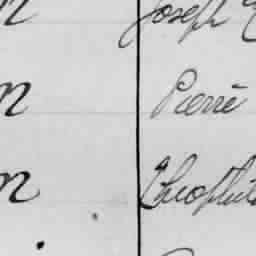 n Joseph
n Pierre
n Theophile